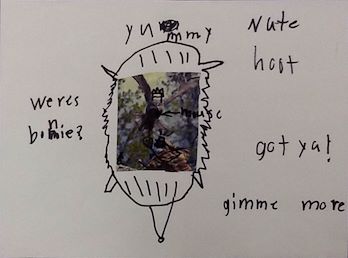 yummy
Nate
hoot
mouse
weres
binnie?
got ya!
gimme more